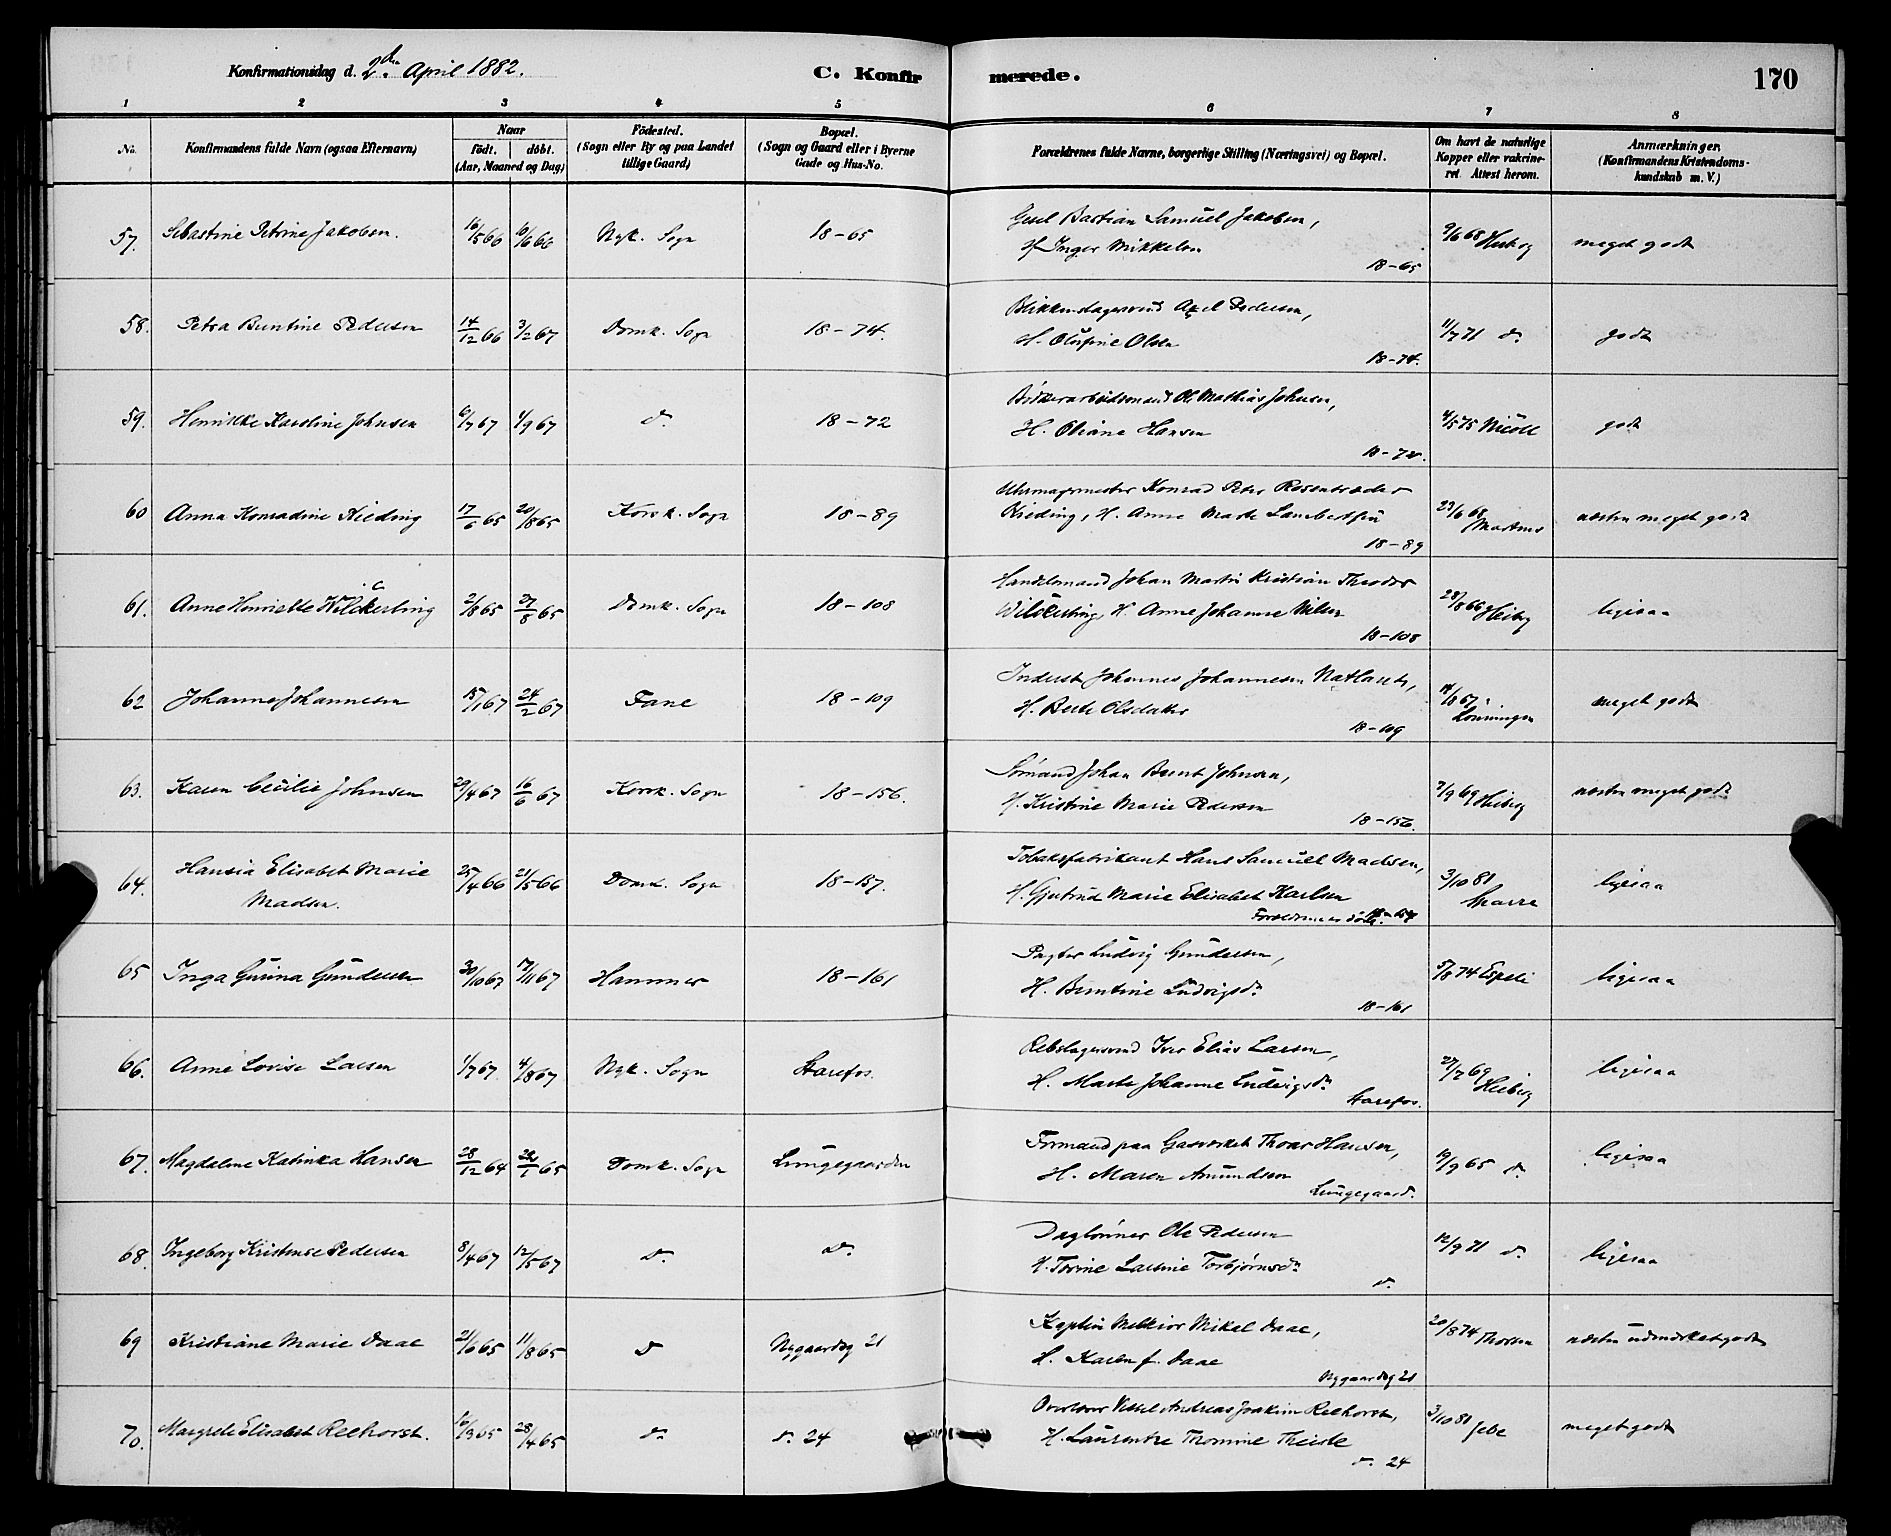 Konfirmationsdag d. 2den April 1882.
C. Konfirmerede.
170
1 2 3 4 5 6 7 8
No.
Konfirmandens fulde Navn (ogsaa Efternavn)
Naar
födt. döbt.
(Aar, Maaned og Dag)
Födested.
(Sogn eller By og paa Landet
tillige Gaard)
Bopæl.
(Sogn og Gaard eller i Byerne
Gade og Hus-No.
Forældrenes fulde Navne, borgerlige Stilling (Næringsvei) og Bopæl.
Om havt de naturlige
Kopper eller vakcine-
ret. Attest herom.
Anmærkninger.
(Konfirmandens Kristendoms-
kundskab m. V.)
57. Sebastine Petrine Jakobsen. 16/5 66 10/6 66 Nyk. Sogn 18-65 Bastian Samuel Jakobsen, 9/6 68 meget godt
H. Inger Mikkelsen
18-65
58. Petra Berntine Pedersen 14/12 66 3/2 67 Domk. Sogn 18-74. Blikkenslagersvend Axel Pedersen, 11/7 71 d. godt
H. Olufine Olsen
18-74.
59. Henrikke Karoline Johnsen 6/7 67 1/9 67 d. 18-72 Ole Mathias Johnsen, 4/5 75 godt
H. Oliane Hansen
18-72.
60 Anna Konradine Kieding 17/6 65 20/8 65 Korsk. Sogn 18-89 Uhrmagermester Konrad Peter Rosentræder 23/6 68 Martens næsten meget godt
Kieding, H. Anne Marte Lambertsen
18-89
61. Anne Henriette Wilckerling 2/8 65 27/8 65 Domk. Sogn 18-108 Handelsmand Johan Martin Kristian Theodor 28/8 66 Heiberg ligesaa
Wilckerling, H. Anne Johanne Nilsen
18-108
62 Johanne Johannesen 15/1 67 24/2 67 Fane 18-109 Inderst Johannes Johannesen Natland, Lönningen meget godt
H. Berte Olsdatter
18-109
63. Karen Cecilie Johnsen 29/4 67 16/6 67 Korsk. Sogn 18-156. Sömand Johan Bernt Johnsen, 7/9 69 Heiberg næsten meget godt
H. Kristine Marie Pedersen
18-156.
64. Hansia Elisabet Marie 25/4 66 21/5 66 Domk. Sogn 18-157. Tobaksfabrikant Hans Samuel Madsen, 3/10 81 ligesaa
Madsen.
H. Gjertrud Marie Elisabet Karlsen
65 Inga Gurina Gundersen 30/10 67 17/11 67 Hammer 18-161 Ludvig Gundersen, 5/8 74 Espeli ligesaa
H. Berntine Ludvigsdr.
18-161
66. Anne Lovise Larsen 1/7 67. 4/8 67 Nyk. Sogn Starefos. Rebslagersvend Iver Elias Larsen, 27/7 69 Heiberg ligesaa
H. Marte Johanne Ludvigsdr.
Starefos.
67. Magdalene Katinka Hansen 28/12 64 22/1 65 Domk. Sogn Lungegaarden Formand paa Gasverket Thomas Hansen, 19/9 65 d. ligesaa
H. Maren Amundsen
Lungegaard.
68. Ingeborg Kristense Pedersen 8/4 67 12/5 67 d. d. Daglönner Ole Pedersen 12/9 71 d. ligesaa
H. Torine Larsine Torbjörnsdr.
d.
69 Kristiane Marie Daae 21/6 65 11/8 65 d Nygaardsg 21 Kaptein Melkior Mikal Daae, 20/8 74 næsten udmærket godt
H. Karen f. Daae
Nygaardsg 21
70. Margrete Elisabet Reehorst. 16/3 65 28/4 65 d. d. 24 Andreas Joakim Reehorst, 3/10 81 Jebe meget godt
H. Laurentze Thomine Theiste
d. 24